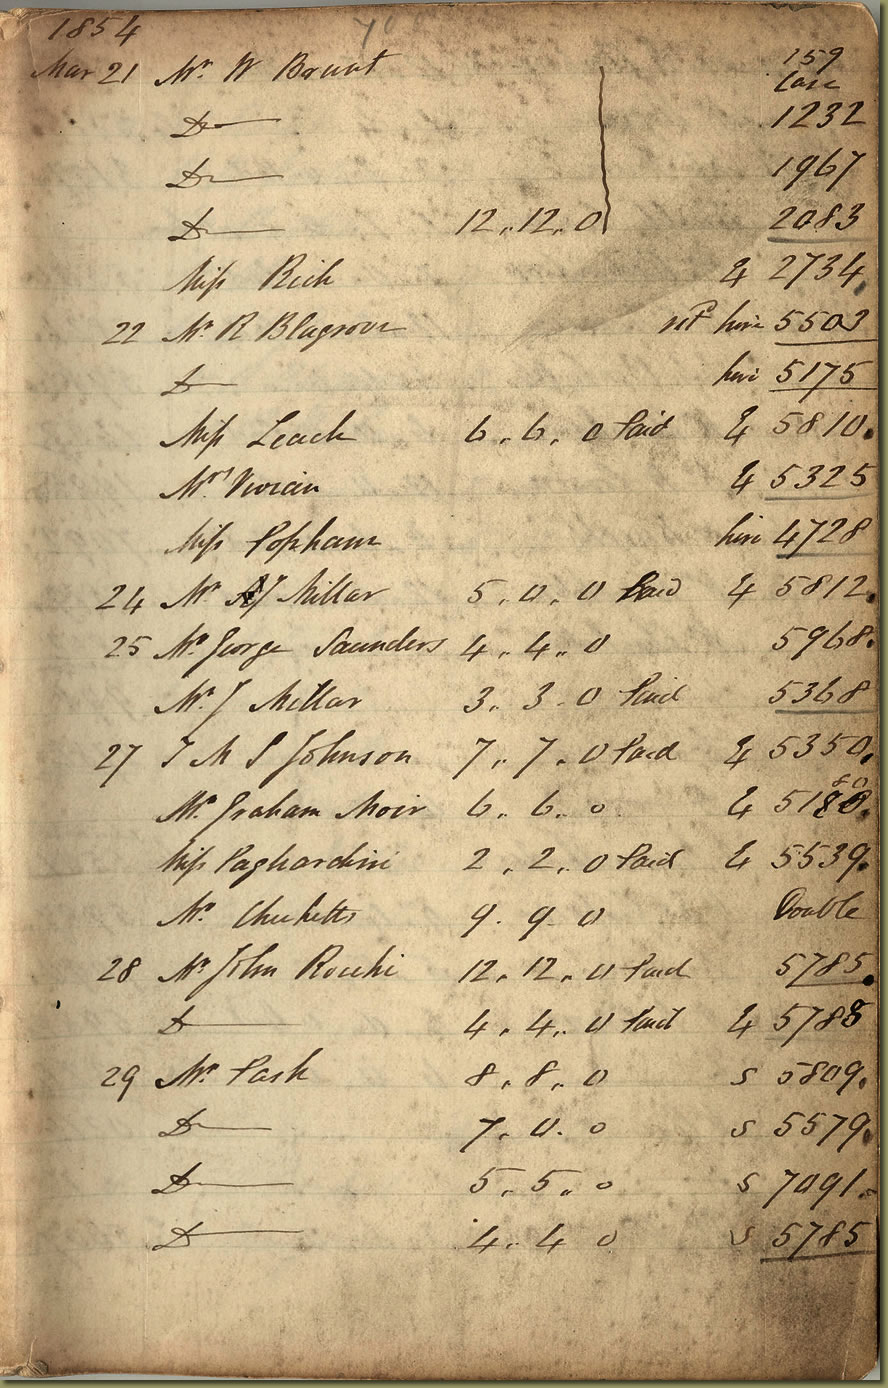 1854
Mar 21 Mr W Brunt 159
Case
Do 1232
Do 1967
Do 12 ,, 12 ,, 0 2083
Miss Rich 4 2734
22 Mr R Blagrove retd hire 5503
Do hire 5175
Miss Leach 6 ,, 6 ,, 0 Paid 4 5810.
Mrs Vivian 4 5325
Miss Popham hire 4728
24 Mr J Millar 5 ,, 0 ,, 0 Paid 4 5812.
25 Mr George Saunders 4 ,, 4 ,, 0 5968.
Mr J Millar 3 ,, 3 ,, 0 Paid 5368
27 T M S Johnson 7 ,, 7 ,, 0 Paid 4 5350.
80
Mr Graham Moir 6 ,, 6 ,, 0 4 5180.
Miss Pagliardini 2 ,, 2 ,, 0 Paid 4 5539.
Mr Checketts 9 ,, 9 ,, 0 Double
28 Mr John Rocchi 12 ,, 12 ,, 0 Paid 5785.
Do 4 ,, 4 ,, 0 Paid 4 5788
29 Mr Pask 8 ,, 8 ,, 0 s 5809.
Do 7 ,, 0 ,, 0 s 5579.
Do 5 ,, 5 ,, 0 s 7091.
Do 4 ,, 4 ,, 0 s 5785